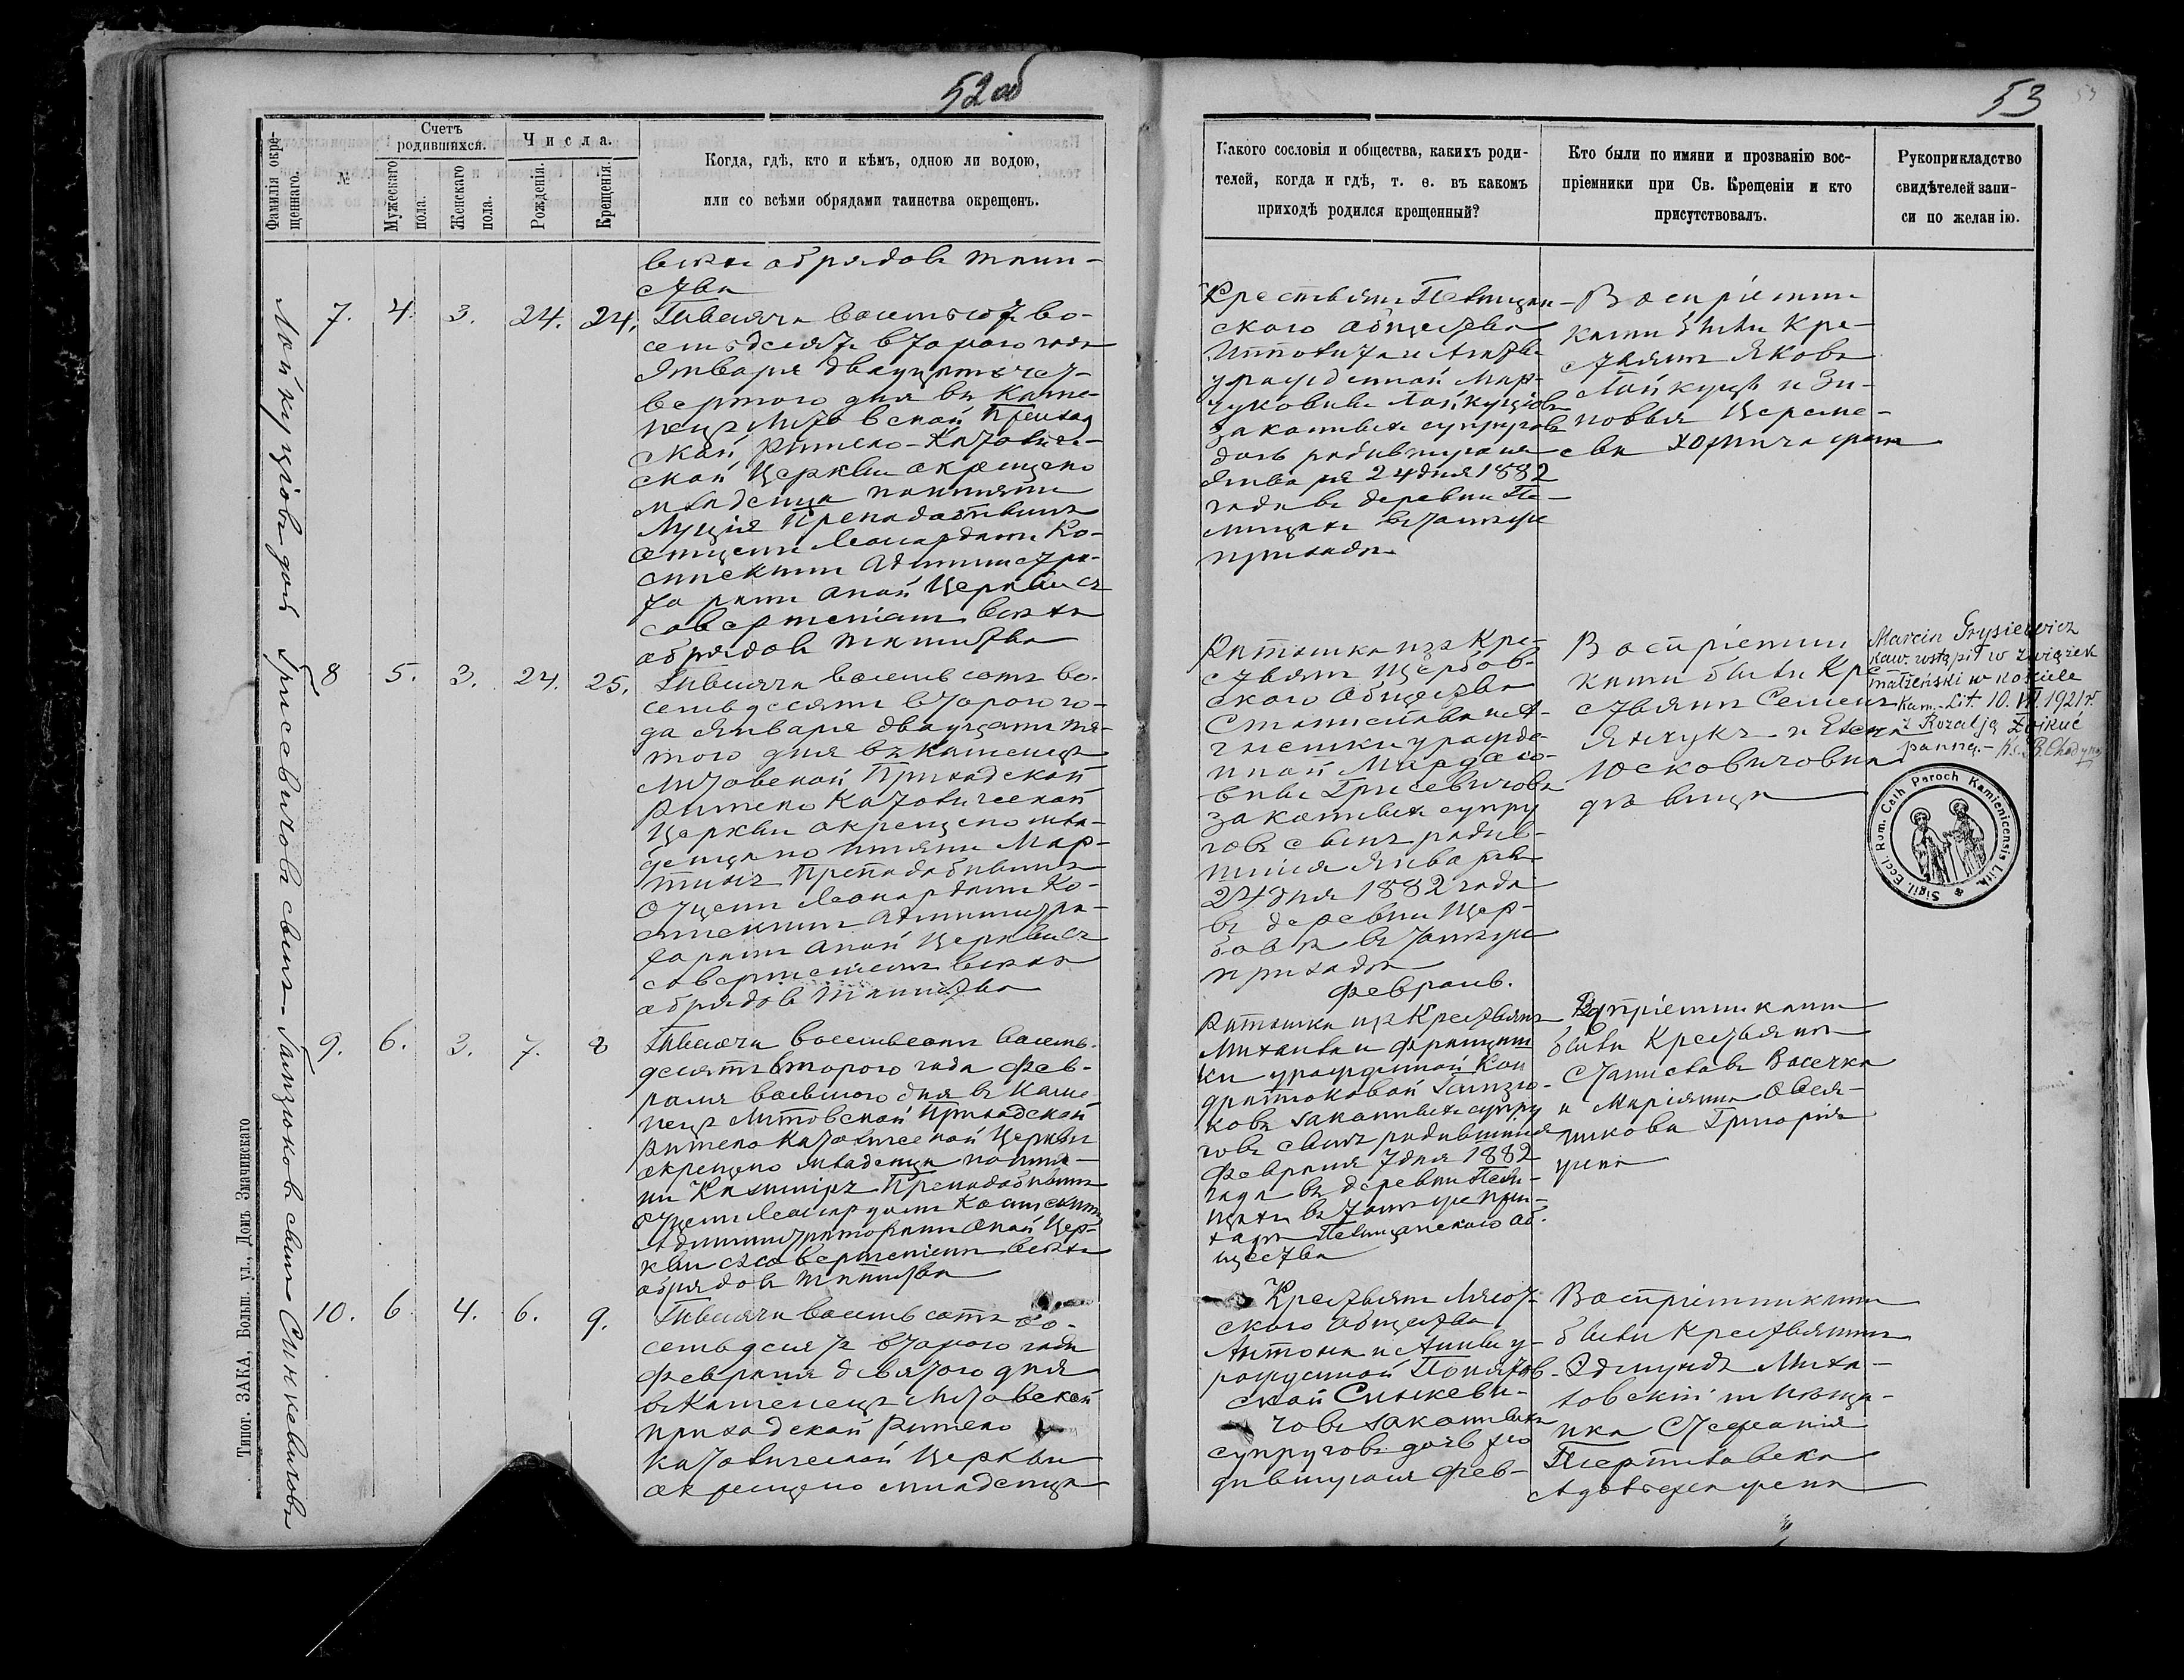 52 об
Фамилія окре-
щеннаго.
№
Счетъ
родившихся.
Мужескаго
пола.
Женскаго
пола.
Числа.
Рожденія.
Крещенія.
Когда, гдѣ, кто и кѣмъ, одною ли водою,
или со всѣми обрядами таинства окрещенъ.
всѣхъ обрядовъ таин-
ства
Лойкуціовъ дочь
7. 4. 3. 24. 24.
Тысяча восемьсотъ во-
семьдесятъ втораго года
Января двадцать чет-
вертаго дня въ Каме-
нецъ Литовской Приход
ской Римско-Католиче-
ской Церкви окрещено
младенца по имени
Луція Преподобнымъ
Отцемъ Леонардомъ Ко-
Администра-
торомъ оной Церкви съ
совершеніемъ всѣхъ
обрядовъ таинства
Грисевичовъ сынъ
8 5. 3. 24. 25.
Тысяча восемь сотъ во-
семьдесятъ втораго го-
да Января двадцать пя-
того дня въ Каменецъ
Литовской Приходской
Римско Католической
Церкви окрещено мла-
денца по имени Мар-
тинъ Преподобнымъ
Отцемъ Леонардомъ Ко-
Администра-
торомъ оной Церкви съ
совершеніемъ всѣхъ
обрядовъ таинства
Ганзюковъ сынъ
9. 6. 3. 7. 8
Тысяча восемьсотъ восемь-
десятъ втораго года Фев-
раля восьмого дня въ Каме-
нецъ Литовской Приходской
Римско Католической Церкви
окрещено младенца по име-
ни Казимиръ Преподобнымъ
Отцемъ Леонардомъ
Администраторомъ оной Цер-
кви съ совершеніемъ всѣхъ
обрядовъ таинства
Синкевичовъ
10. 6 4. 6. 9.
Тысяча восемь сотъ во-
семьдесятъ втораго года
Февраля девятого дня
въ Каменецъ Литовской
приходской Римско
Католической Церкви
окрещено младенца
Типог. ЗАКА, Больш. ул., Домъ Значинскаго
53
Какого сословія и общества, какихъ роди-
телей, когда и гдѣ, т. е. въ какомъ
приходѣ родился крещенный?
Кто были по имяни и прозванію вос-
пріемники при Св. Крещеніи и кто
присутствовалъ.
Рукоприкладство
свидѣтелей запи-
си по желанію.
Крестьянъ Пелищан-
ского общества
урожденной Мар-
чуковны Лойкуціовъ
законныхъ супруговъ
дочь родившуюся
Января 24 дня 1882
года въ деревни Пе-
лищахъ въ томъ же
приходѣ
Воспріемни-
ками были Кре-
стьянъ Яковъ
Лойкуць и Зи-
новья
Ратника изъ Кре-
стьянъ Щербов-
ского общества
Станислава и А-
гнешки урожде-
нной
Грисевичовъ
законныхъ супру
говъ сынъ родив-
шійся Января
24 дня 1882 года
въ деревни Щер-
бовѣ въ томъ же
приходѣ
Воспріемни
ками были Кре
стьянъ Семенъ
Янчукъ и Елена
Юсковичовна
дѣвица
Marcin Grysiewicz
kaw. wstąpił w związek
małżeński w kościele
Kam.-Lit. 10. VII. 1921 r.
z Rozalją Łojkuć
panną. – Ks. B.
Sigil. Eccl. Rom. Cath Paroch Kamienicensis Lith.
Февраль.
Ратника изъ Крестьянъ
Михаила и Францишки
урожденной Кон
дратюковой Ганзю-
ковъ законныхъ супру
говъ сынъ родившійся
Февраля 7 дня 1882
года въ деревни Пели-
щахъ въ томъ же при-
ходѣ Пелищанского об-
щества
Воспріемниками
были Крестьянинъ
Станиславъ Васечка
и Маріянна Овся-
никова Григорія
жена
Крестьянъ
ского общества
Антона и Анны у-
рожденной Понятов-
ской Синкеви-
човъ законныхъ
супруговъ дочь ро
дившуюся Фев-
Воспріемниками
были Крестьянинъ
Эдмундъ Миха-
ловскій и мѣща-
нка Стефанія
Адольфа жена